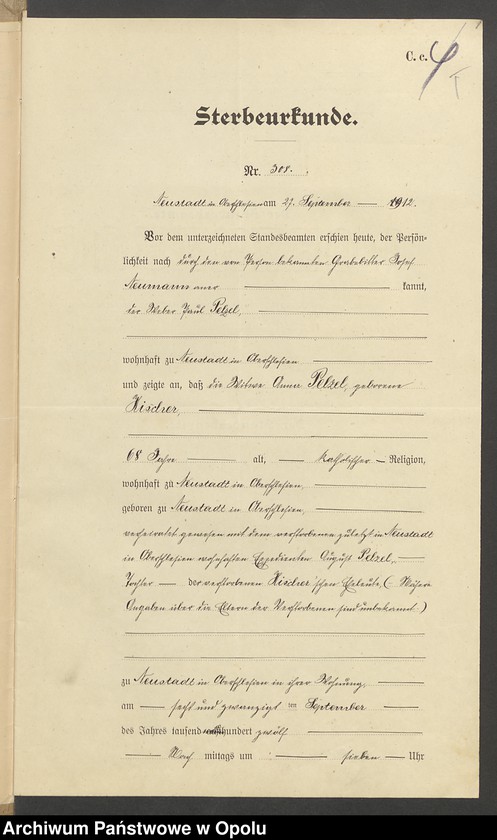 C. c.
Sterbeurkunde.
Nr. 308.
Neustadt in Oberschlesien am 27. September 1912.
Vor dem unterzeichneten Standesbeamten erschien heute, der Persön-
lichkeit nach durch den von Person bekannten Grabebitter Josef
Neumann aner kannt,
der Weber Paul Pelzel,
wohnhaft zu Neustadt in Oberschlesien
und zeigte an, daß die Witwe Anna Pelzel, geborene
Kischer,
68 Jahre alt, katholischer Religion,
wohnhaft zu Neustadt in Oberschlesien,
geboren zu Neustadt in Oberschlesien,
verheiratet gewesen mit dem verstorbenen zuletzt in Neustadt
in Oberschlesien wohnhaften Expedienten August Pelzel,
Tochter der verstorbenen Kischer'schen Eheleute, (Nähere
Angaben über die Eltern der Verstorbenen sind unbekannt.)
zu Neustadt in Oberschlesien in ihrer Wohnung,
am sechs und zwanzigsten September
des Jahres tausend neunhundert zwölf
Nach mittags um sieben Uhr
Archiwum Państwowe w Opolu